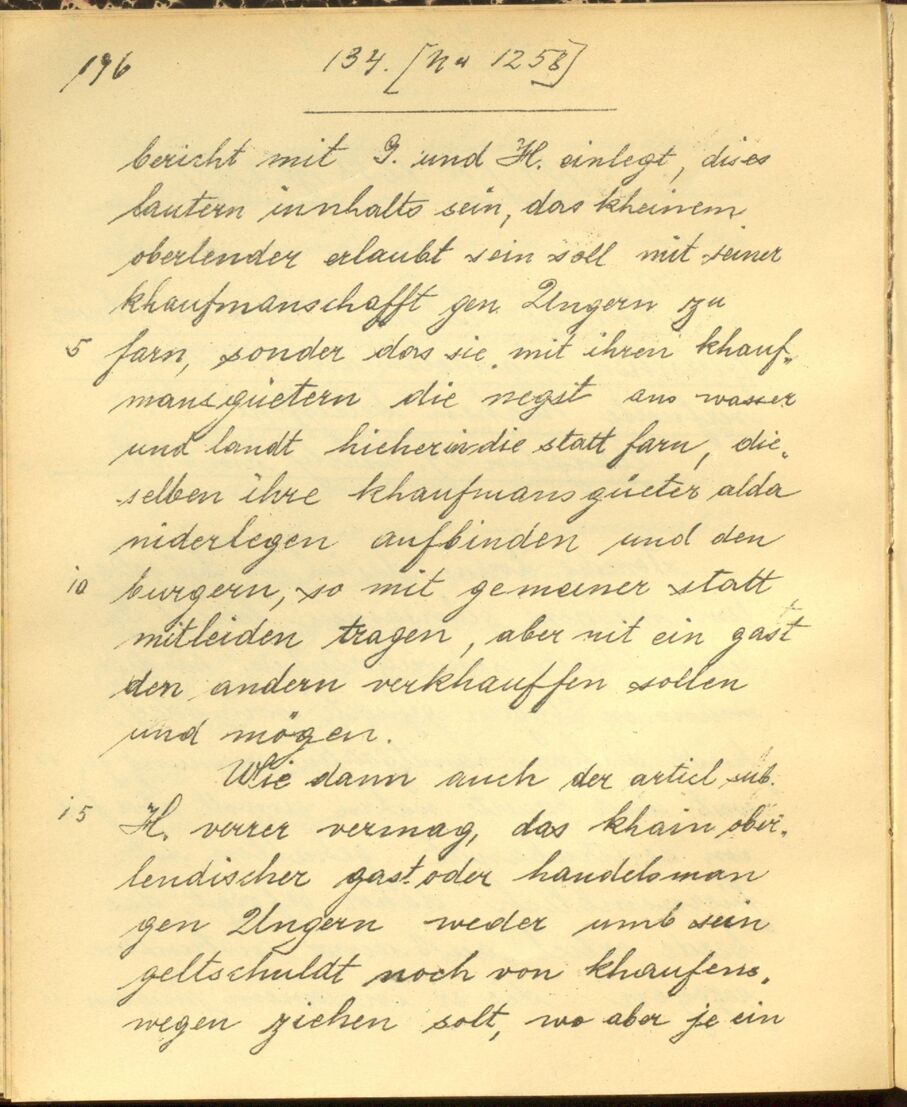 196
134. [Na 1258]
bericht mit G. und H. einlegt, dises
lautern innhalts sein, das kheinem
oberlender erlaubt sein soll mit seiner
khaufmanschafft gen Ungern zu
5 farn, sonder das sie mit ihren khauf„
mansgüetern die negst aus wasser
und landt hieher in die statt farn, die„
selben ihre khaufmansgüeter alda
niderlegen aufbinden und den
10 burgern, so mit gemeiner statt
mitleiden tragen, aber nit ein gast
den andern verkhauffen sollen
und mögen.
Wie dann auch der articl sub.
15 H. verrer vermag, das khain ober„
lendischer gast oder handelsman
gen Ungern weder umb sein
geltschuldt noch von khaufens„
wegen ziehen solt, wo aber je ein